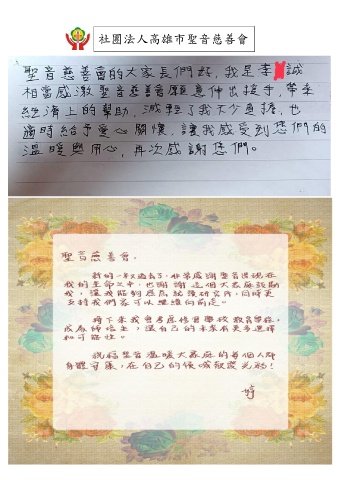 社團法人高雄市聖音慈善會
聖音慈善會的大家長們好,我是李 誠
相當感激聖音慈善會願意伸出援手,帶來
經濟上的幫助,減輕了我不少負擔,也
適時給予愛心關懷,讓我感受到您們的
溫暖與用心,再次感謝您們。
聖音慈善會,
新的一年又過去了,非常感謝聖音出現在
我的生命之中,也謝謝這個大家庭鼓勵
我,讓我能夠
支持我們家可以繼續向前走。
接下來我會考慮修習學校教育學程,
成為師培生,讓自己的未來有更多選擇
和可能性。
祝福聖音溫暖大家庭的每個人都
身體安康,在自己的領域散發光芒!
婷